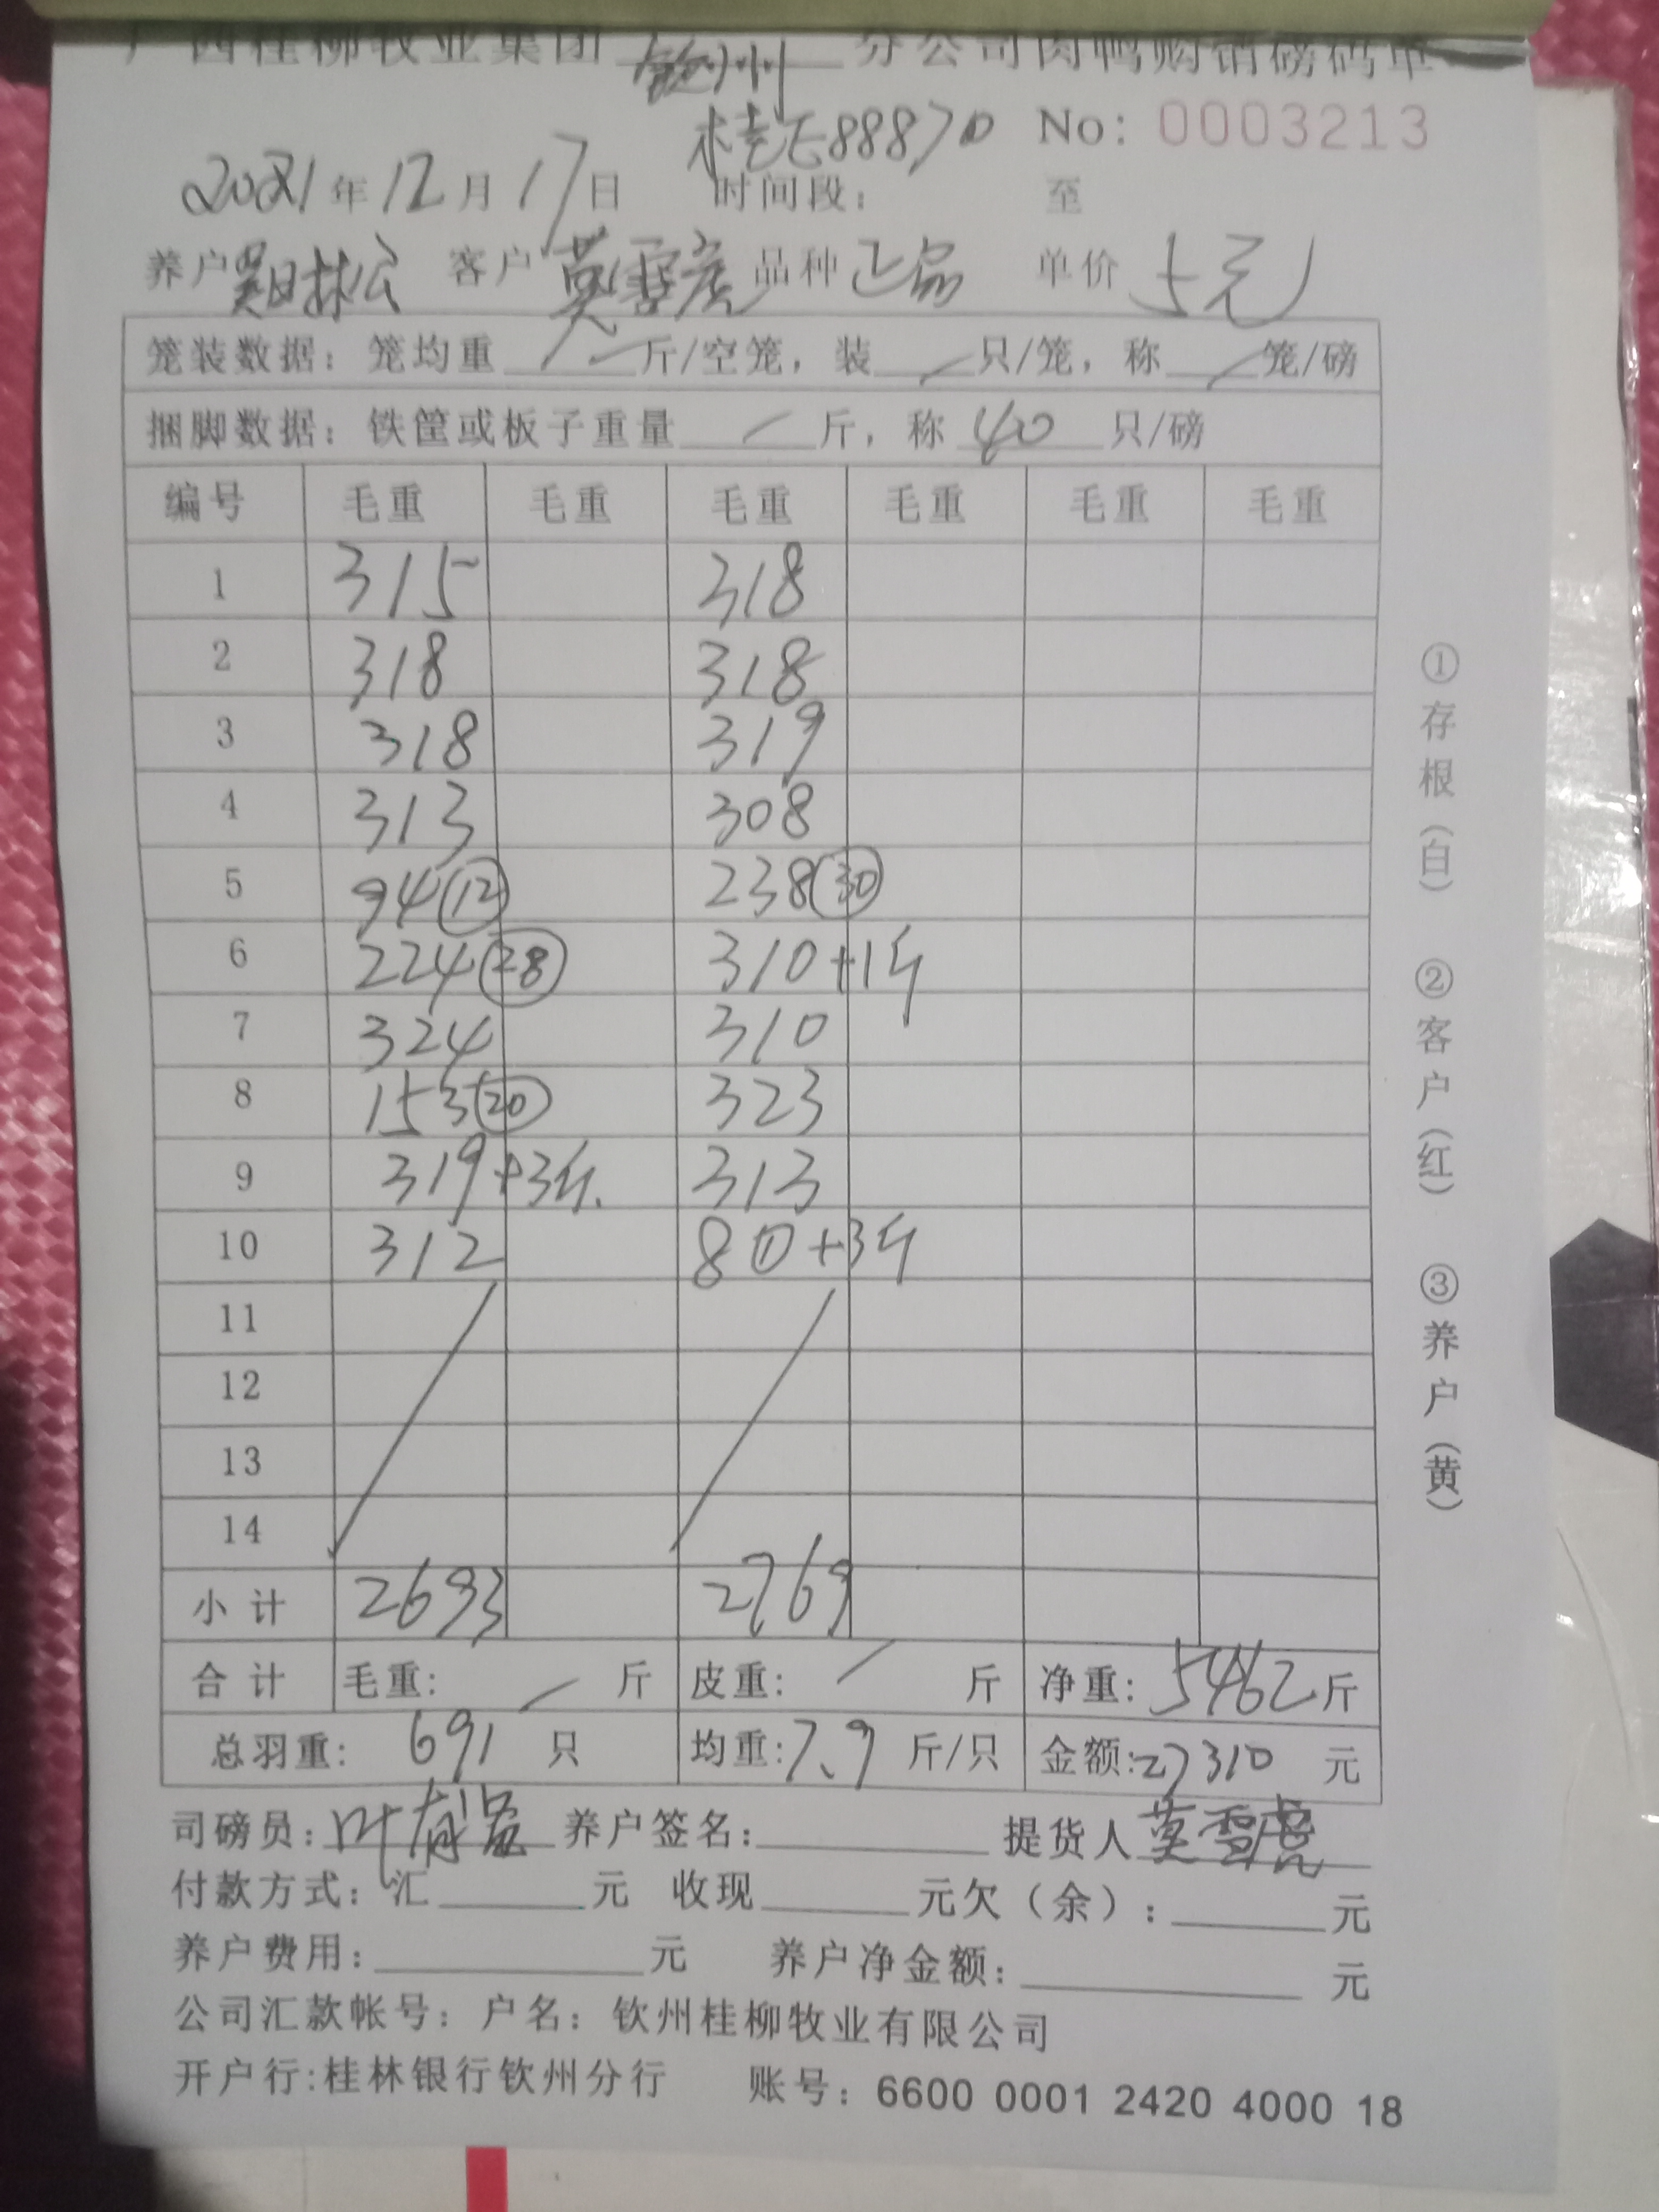 广西桂柳牧业集团 钦州 分公司肉鸭购销磅码单
桂E88870 No: 0003213
2021年12月17日 时间段: 至
养户 客户 莫雪 品种 正品 单价 5元
笼装数据: 笼均重 / 斤/空笼, 装 / 只/笼, 称 / 笼/磅
捆脚数据: 铁筐或板子重量 / 斤, 称 40 只/磅
编号 毛重 毛重 毛重 毛重 毛重 毛重
1 315 318
2 318 318
3 318 319
4 313 308
5 94 ⑫ 238 ㉚
6 224 ㉘ 310+1斤
7 324 310
8 153 ⑳ 323
9 319+3斤. 313
10 312 8 ①+3斤
11
12
13
14
小计 2693 2769
合计 毛重: / 斤 皮重: / 斤 净重: 5462斤
总羽重: 691 只 均重:7.9 斤/只 金额:27310 元
司磅员: 叶 养户签名: 提货人 莫雪
付款方式: 汇 元 收现 元欠(余): 元
养户费用: 元 养户净金额: 元
公司汇款帐号: 户名: 钦州桂柳牧业有限公司
开户行:桂林银行钦州分行 账号: 6600 0001 2420 4000 18
①存根(白) ②客户(红) ③养户(黄)